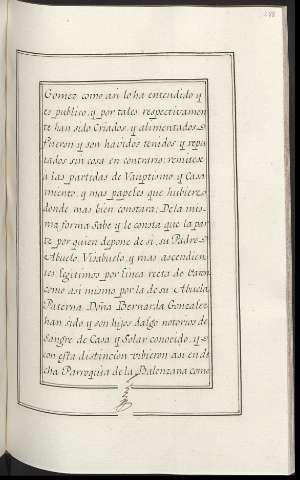 Gomez como asi lo ha entendido y
es publico, y por tales respectivamen
te han sido Criados, y alimentados, y
fueron y son havidos tenidos y repu
tados sin cosa en contrario; remitese
a las partidas de Vauptismo y Casa
miento, y mas papeles que hubiere
donde mas bien constara; De la mis-
ma forma Sabe y le consta que la par
te por quien depone de si, su Padre,
Abuelo, Visabuelo, y mas ascendien
tes legitimos por linea recta de Varon
como asi mismo por la de su Abuela
Paterna Doña Bernarda Gonzalez
han sido y son hijos dalgo notorios de
Sangre de Casa y Solar conocido, y
con esta distincion vibieron asi en di
cha Parroquia de la Balenzana como